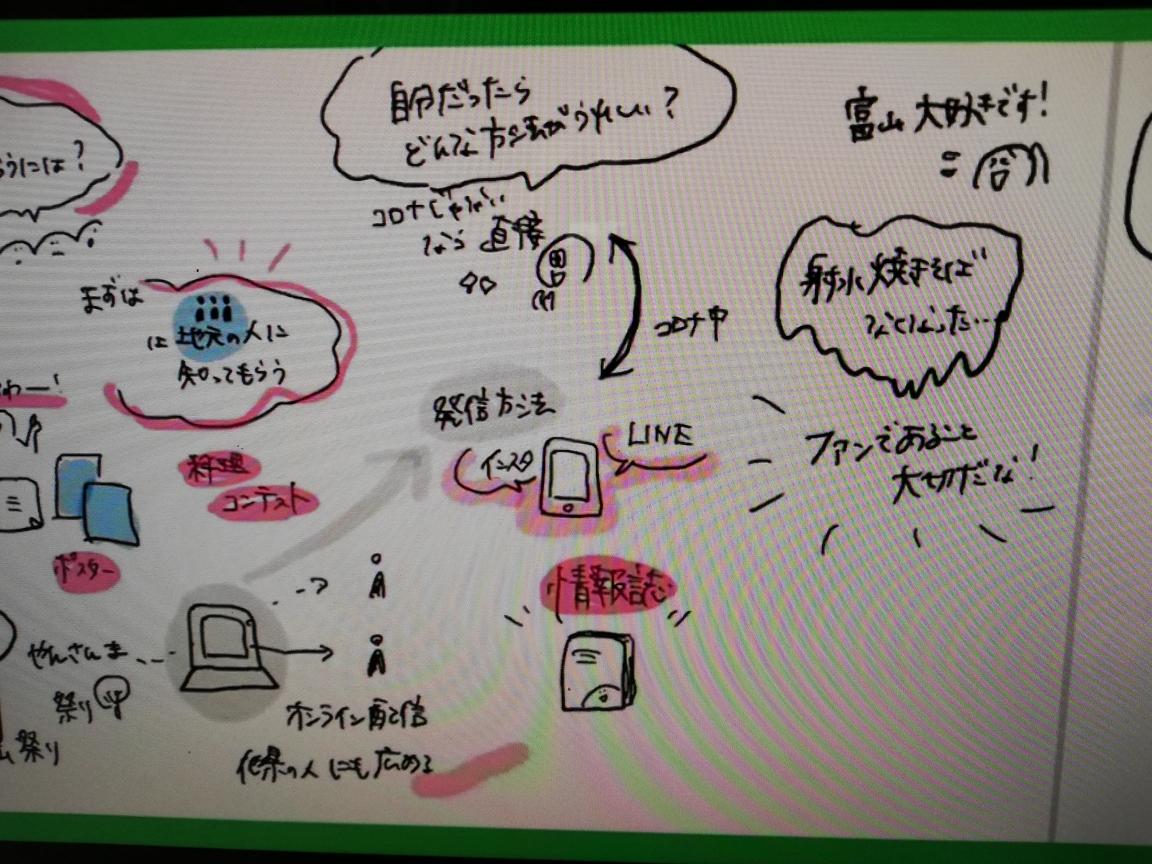 うには？
自分だったら
どんな方法がうれしい？
富山大好きです！
コロナじゃない
なら 直接
まずは
に地元の人に
知ってもらう
コロナ中
射水焼きそば
なくなった…
わー！
発信方法
インスタ
LINE
ファンであること
大切だな！
料理
コンテスト
ポスター
情報誌
やんさんま
祭り
祭り
オンライン配信
他県の人にも広める